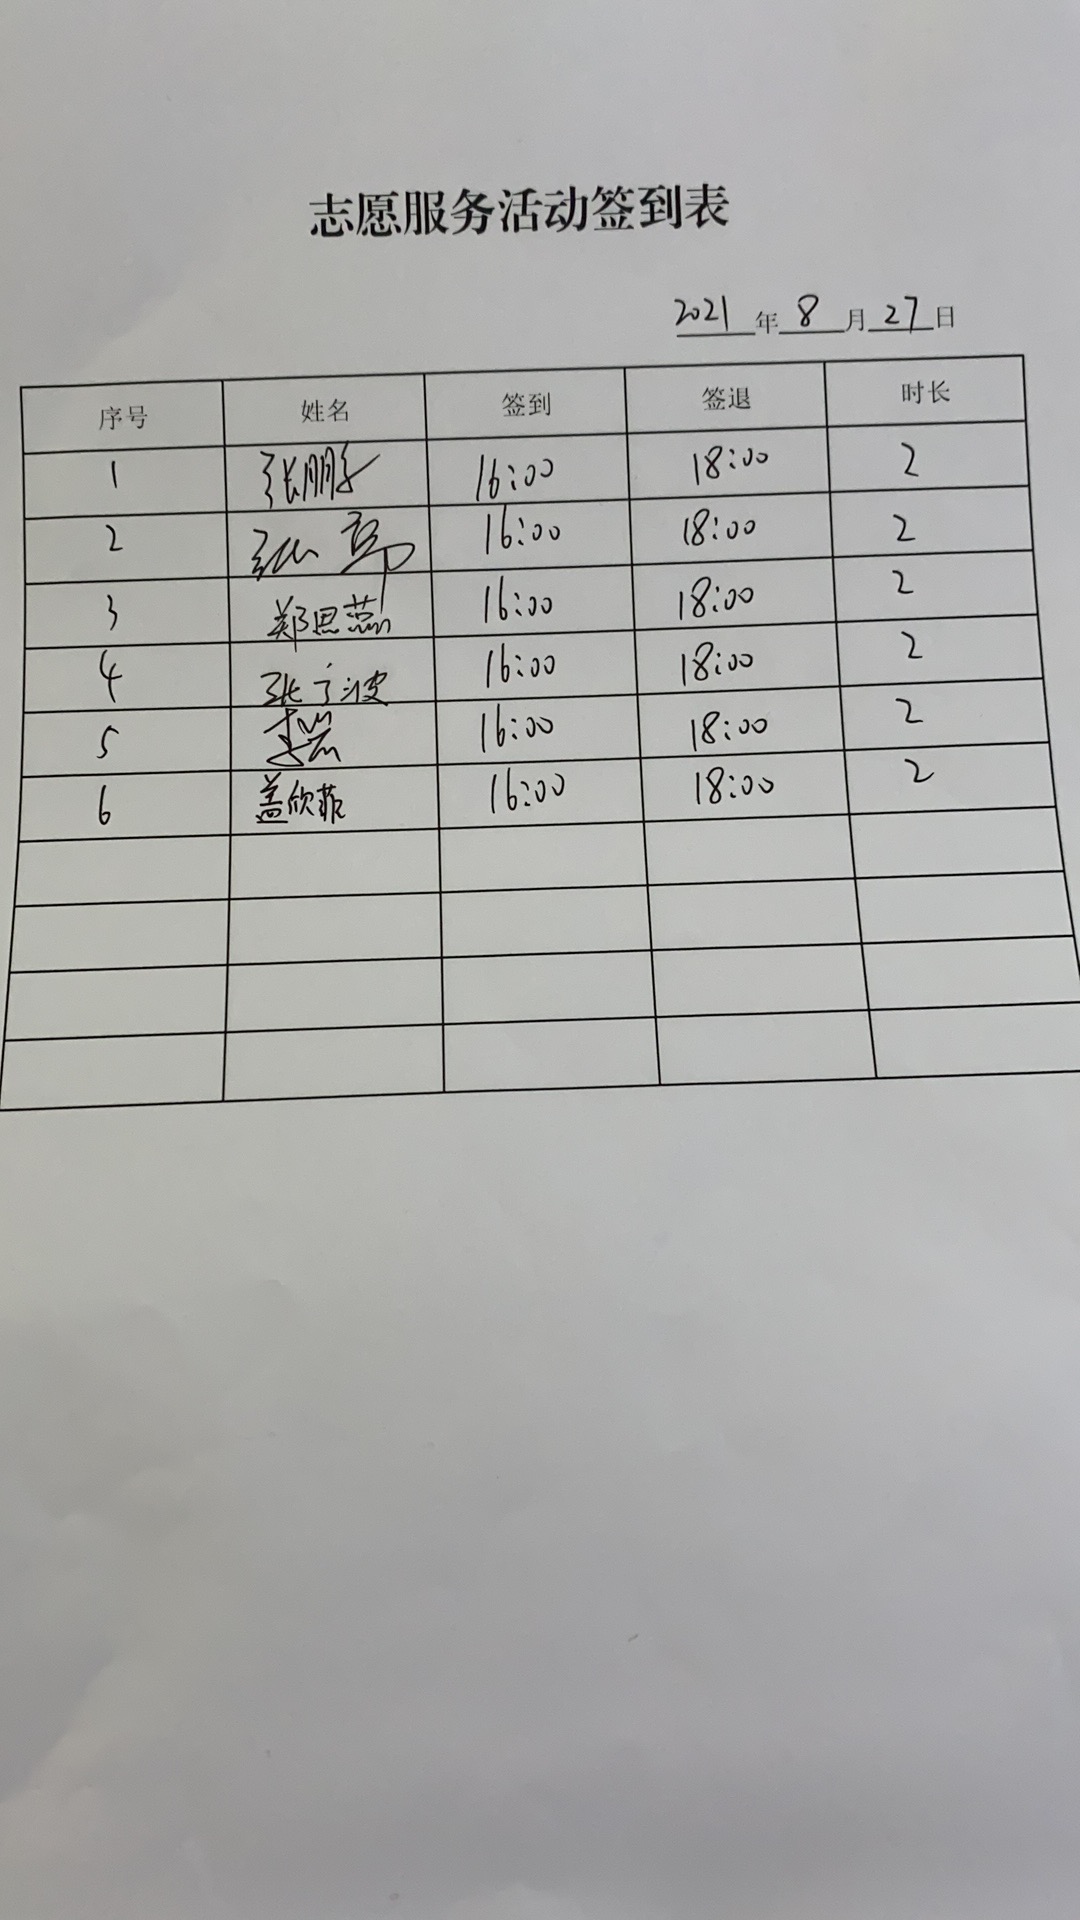 志愿服务活动签到表
2021年8月27日
序号 姓名 签到 签退 时长
1 张鹏 16:00 18:00 2
2 16:00 18:00 2
3 郑思蕊 16:00 18:00 2
4 张宁波 16:00 18:00 2
5 16:00 18:00 2
6 盖欣菲 16:00 18:00 2